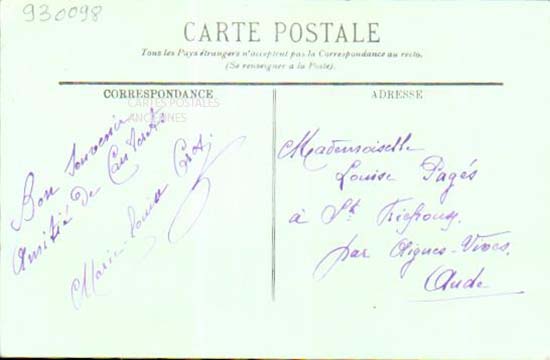 930098
CARTE POSTALE
Tous les Pays étrangers n'acceptent pas la Correspondance au recto.
(Se renseigner à la Poste).
CORRESPONDANCE
CARTES POSTALES
ANCIENNES
Bon Souvenir
Amitié de
Marie-Louise
ADRESSE
Mademoiselle
Louise Pagés
à St
par Aigues-Vives,
Aude